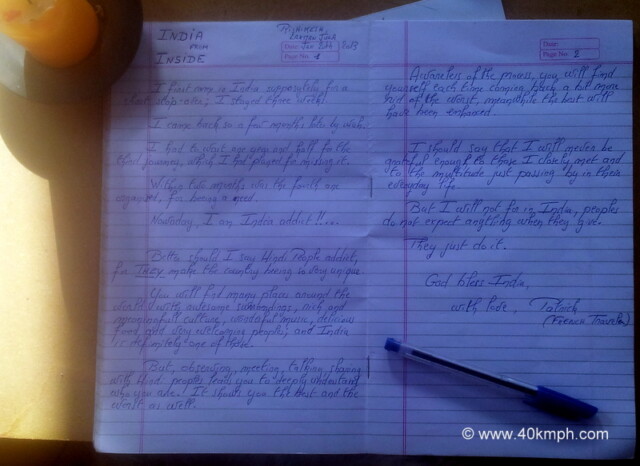 INDIA
FROM
INSIDE
RISHIKESH
Date: Jan 2013
Page No. 1
I first came in India supposedly for a
short stop over; I stayed three weeks!
I came back so a few months later by wish.
I had to wait one year and half for the
third journey, which I had played for missing it.
Within two months was the fourth one
organised, for being a need.
Nowaday, I am India addict!!...
Better should I say Hindi People addict,
for THEY make the country being so very unique.
You will find many places around the
world with awesome surroundings, rich and
meaningfull culture, wonderful music, delicious
food, and very welcoming people; and India
is definitely one of them.
But, observing, meeting, talking, sharing
with Hindi peoples leads you to deeply understand
who you are! It shows you the best and the
worst as well.
Date:
Page No. 2
Awareless of the process, you will find
yourself each time coming back a bit more
rid of the worst, meanwhile the best will
have been enhanced.
I should say that I will never be
grateful enough to those I closely met and
to the multitude just passing by in their
everyday life.
But I will not for in India, peoples
do not expect anything when they give.
They just do it.
God bless India,
with love, Patrick
(FRENCH TRAVELER)
© www.40kmph.com